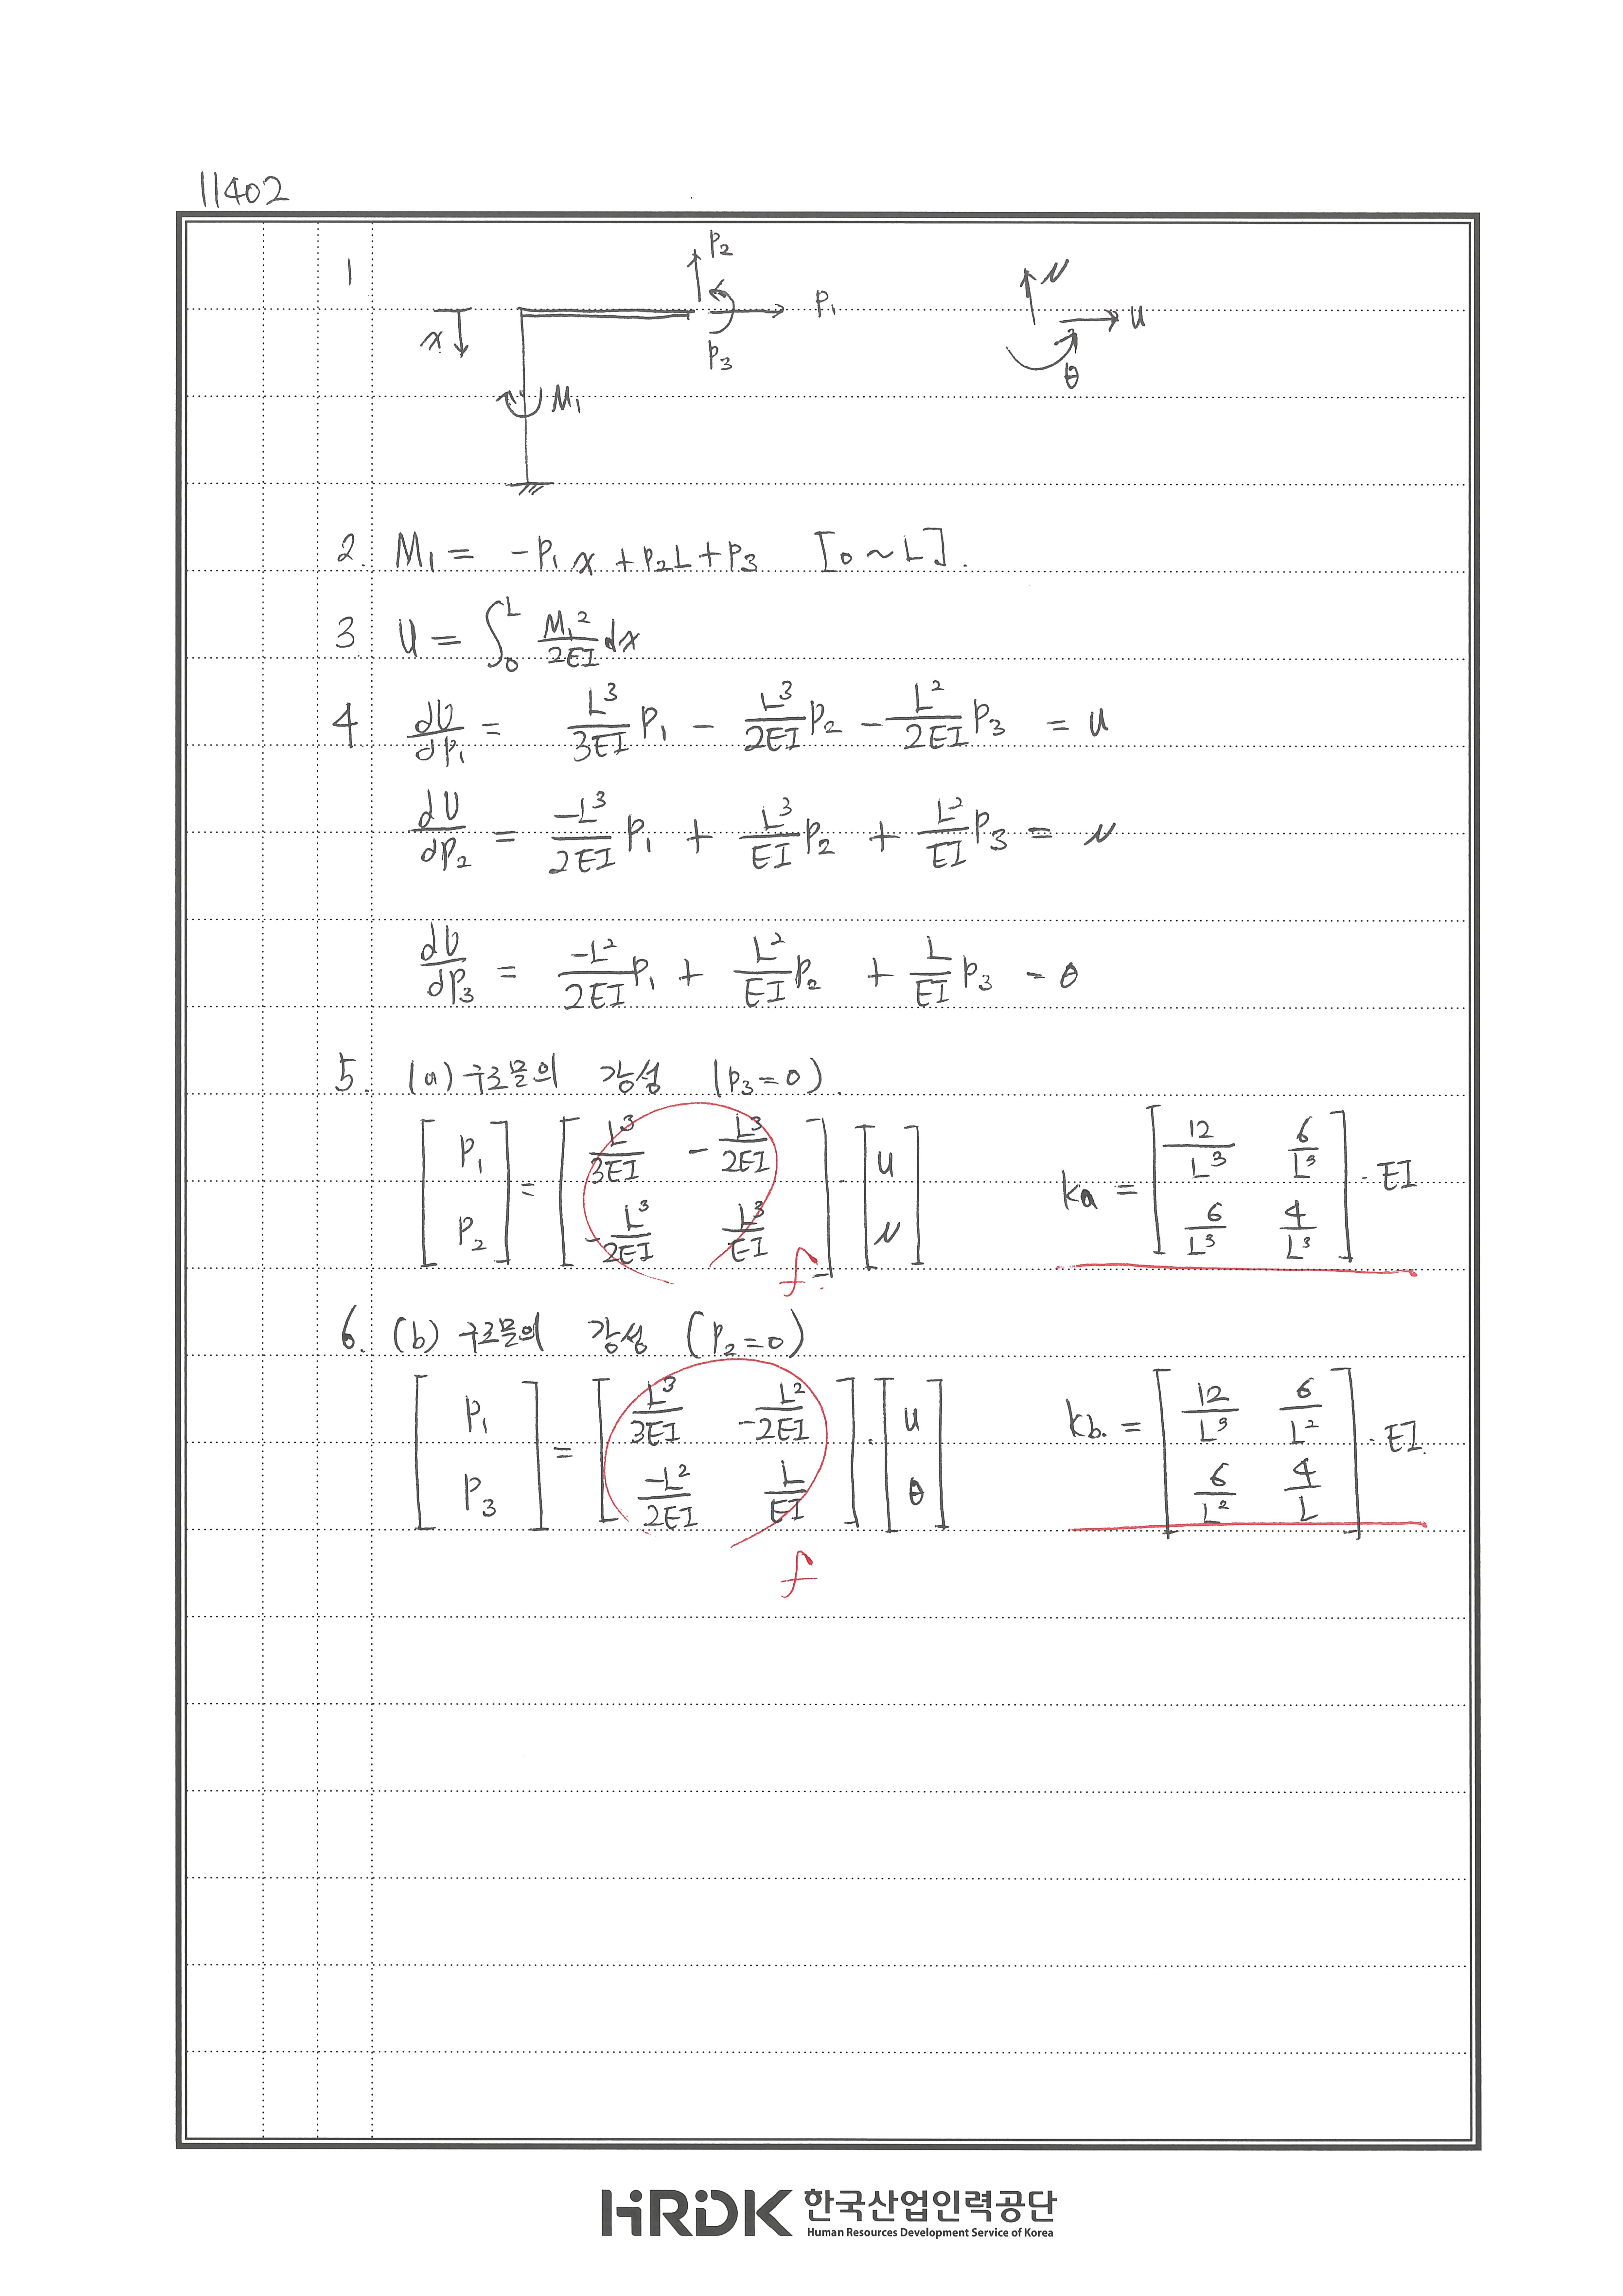 11402
1
P₂
P₁
P₃
x
M₁
v
u
θ
2. M₁ = -P₁x + P₂L + P₃ [0 ~ L].
3. U = ∫₀ᴸ M₁²/2EI dx
4 dU/dP₁ = L³/3EI P₁ - L³/2EI P₂ - L²/2EI P₃ = u
dU/dP₂ = -L³/2EI P₁ + L³/EI P₂ + L²/EI P₃ = v
dU/dP₃ = -L²/2EI P₁ + L²/EI P₂ + L/EI P₃ = θ
5. (a) 구조물의 강성 (P₃=0).
[P₁; P₂] = [L³/3EI, -L³/2EI; -L³/2EI, L³/EI] · [u; v] ka = [12/L³, 6/L³; 6/L³, 4/L³] · EI
f
6. (b) 구조물의 강성 (P₂=0)
[P₁; P₃] = [L³/3EI, -L²/2EI; -L²/2EI, L/EI] · [u; θ] kb. = [12/L³, 6/L²; 6/L², 4/L] · EI.
f
HRDK 한국산업인력공단
Human Resources Development Service of Korea